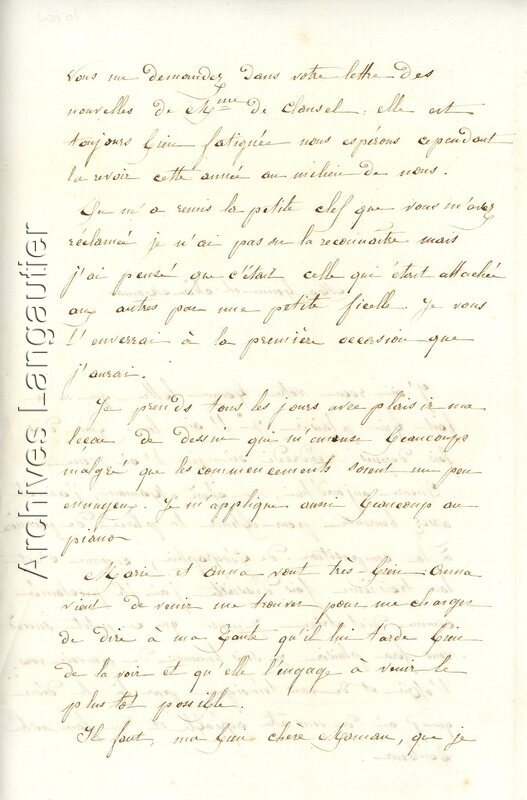 Vous me demandez dans votre lettre des
nouvelles de Mme de Clausel : elle est
toujours bien fatiguée nous espérons cependant
la revoir cette année au milieu de nous.
On m'a remis la petite clef que vous m'avez
réclamée je n'ai pas su la reconnaitre mais
j'ai pensé que c'était celle qui était attachée
aux autres par une petite ficelle Je vous
l'enverrai à la première occasion que
j'aurai.
Je prends tous les jours avec plaisir ma
leçon de dessin qui m'amuse beaucoup
malgré que les commencements soient un peu
ennuyeux. Je m'applique aussi beaucoup au
piano
Marie et Anna vont très bien : Anna
vient de venir me trouver pour me charger
de dire à ma Tante qu'il lui tarde bien
de la voir et qu'elle l'engage à venir le
plus tôt possible.
Il faut, ma bien chère Maman, que je
Archives Langautier